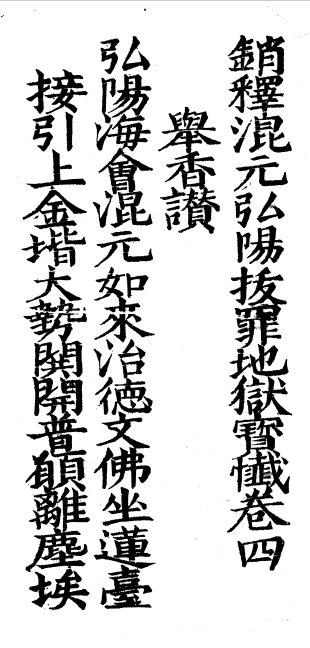 銷釋混元弘陽拔罪地獄寶懺卷四
舉香讚
弘陽海會混元如來治德文佛坐蓮臺
接引上金堦大勢閧開普願離塵埃